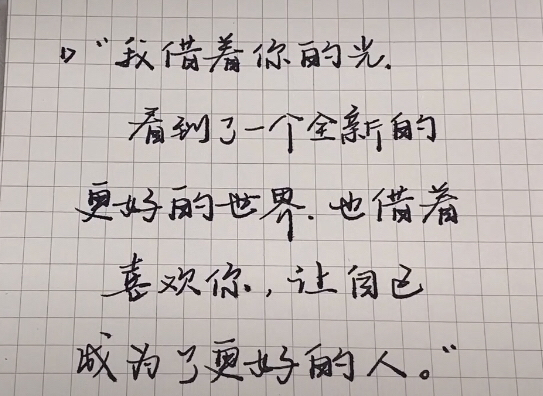 1) “我借着你的光.
看到了一个全新的
更好的世界.也借着
喜欢你,让自己
成为了更好的人。”